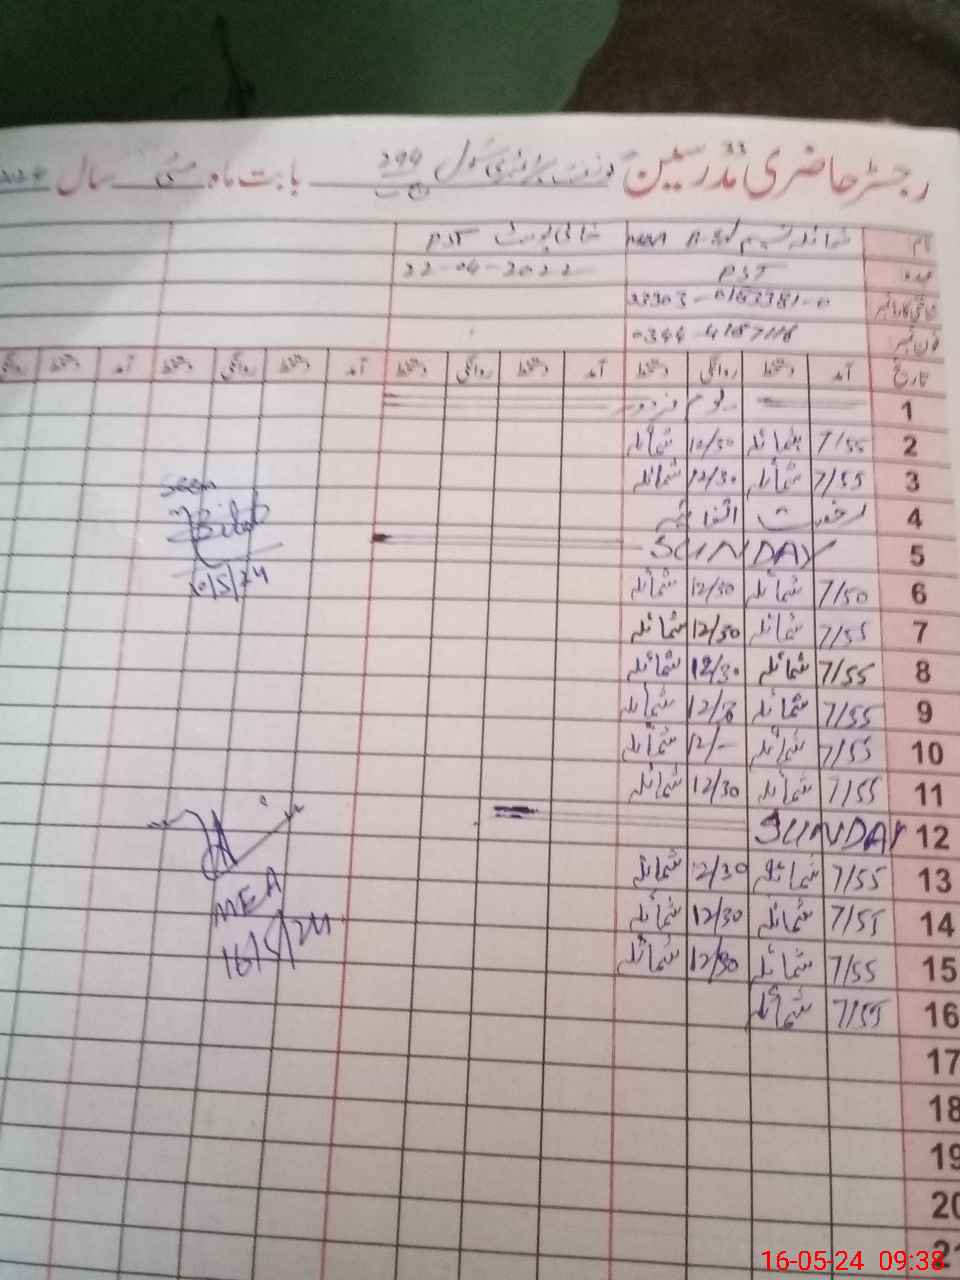 رجسٹر حاضری مدرسین گورنمنٹ پرائمری سکول 294 بابت ماہ مئی سال
نام شمائلہ نسیم خالی پوسٹ PST
عہدہ PST 22-04-2022
0344-4187118
تاریخ آمد دستخط روانگی دستخط آمد دستخط روانگی دستخط آمد دستخط روانگی دستخط آمد دستخط
1 یوم مزدور
2 7/55 شمائلہ 12/30 شمائلہ
3 7/55 شمائلہ 12/30 شمائلہ
4 رخصت اتفاقیہ
5 SUNDAY
6 7/50 شمائلہ 12/30 شمائلہ
7 7/55 شمائلہ 12/30 شمائلہ
8 7/55 شمائلہ 12/30 شمائلہ
9 7/55 شمائلہ شمائلہ
10 7/55 شمائلہ 12/- شمائلہ
11 7/55 شمائلہ 12/30 شمائلہ
12 SUNDAY
13 7/55 شمائلہ 12/30 شمائلہ
14 7/55 شمائلہ 12/30 شمائلہ
15 7/55 شمائلہ 12/30 شمائلہ
16 7/55 شمائلہ
17
18
19
20
Seen
10/5/24
MEA
16/5/24
16-05-24 09:38